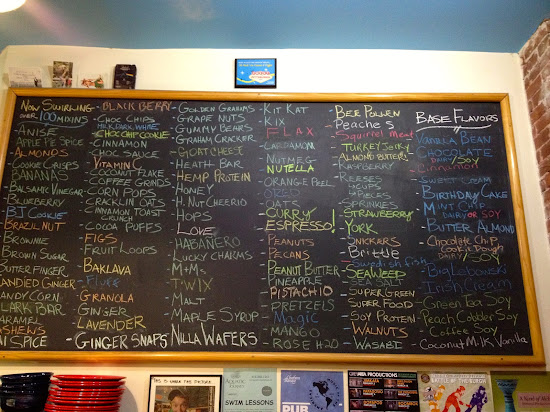 Now Swirling
over 100 mixins
Anise
Apple Pie Spice
Almonds
Cookie Crisps
Bananas
Balsamic Vinegar
Blueberry
BJ Cookie
Brazil Nut
Brownie
Brown Sugar
Butter Finger
Candied Ginger
Candy Corn
Clark Bar
Caramel
Cashews
Chai Spice
Black Berry
Choc Chips
Milk, Dark, White
Choc Chip Cookie
Cinnamon
Choc Sauce
Vitamin C
Coconut Flake
Coffee Grinds
Corn Pops
Cracklin Oats
Cinnamon Toast
Crunch
Cocoa Puffs
Figs
Fruit Loops
Baklava
Fluff
Granola
Ginger
Lavender
Ginger Snaps
Golden Grahams
Grape Nuts
Gummy Bears
Graham Cracker
Goat Cheese
Heath Bar
Hemp Protein
Honey
H. Nut Cheerio
Hops
Love
Habanero
Lucky Chalms
M+Ms
Twix
Malt
Maple Syrup
Nilla Wafers
Kit Kat
Kix
Flax
Cardamom
Nutmeg
Nutella
Orange Peel
Oats
Curry
Espresso!
Peanuts
Pecans
Peanut Butter
Pineapple
Pistachio
Pretzels
Magic
Mango
Rose H2O
Bee Pollen
Peaches
Squirrel Meat
Turkey Jerky
Almond Butter
Raspberry
Reeses
Cups
Pieces
Sprinkles
Strawberry
York
Snickars
Brittle
Swedish Fish
Seaweed
Sea Salt
Super Green
Super Food
Soy Protein
Walnuts
Wasabi
Base Flavors
Vanilla Bean
Chocolate
Dairy/Soy
Cinnamon
Sweet Cream
Birthday Cake
Mint Chip
Dairy or Soy
Butter Almond
Chocolate Chip
Cookie Dough
Dairy/Soy
Big Lebowski
Irish Cream
Green Tea Soy
Peach Cobbler Soy
Coffee Soy
Coconut Milk Vanilla
SWIM LESSONS
PUB
PRODUCTIONS